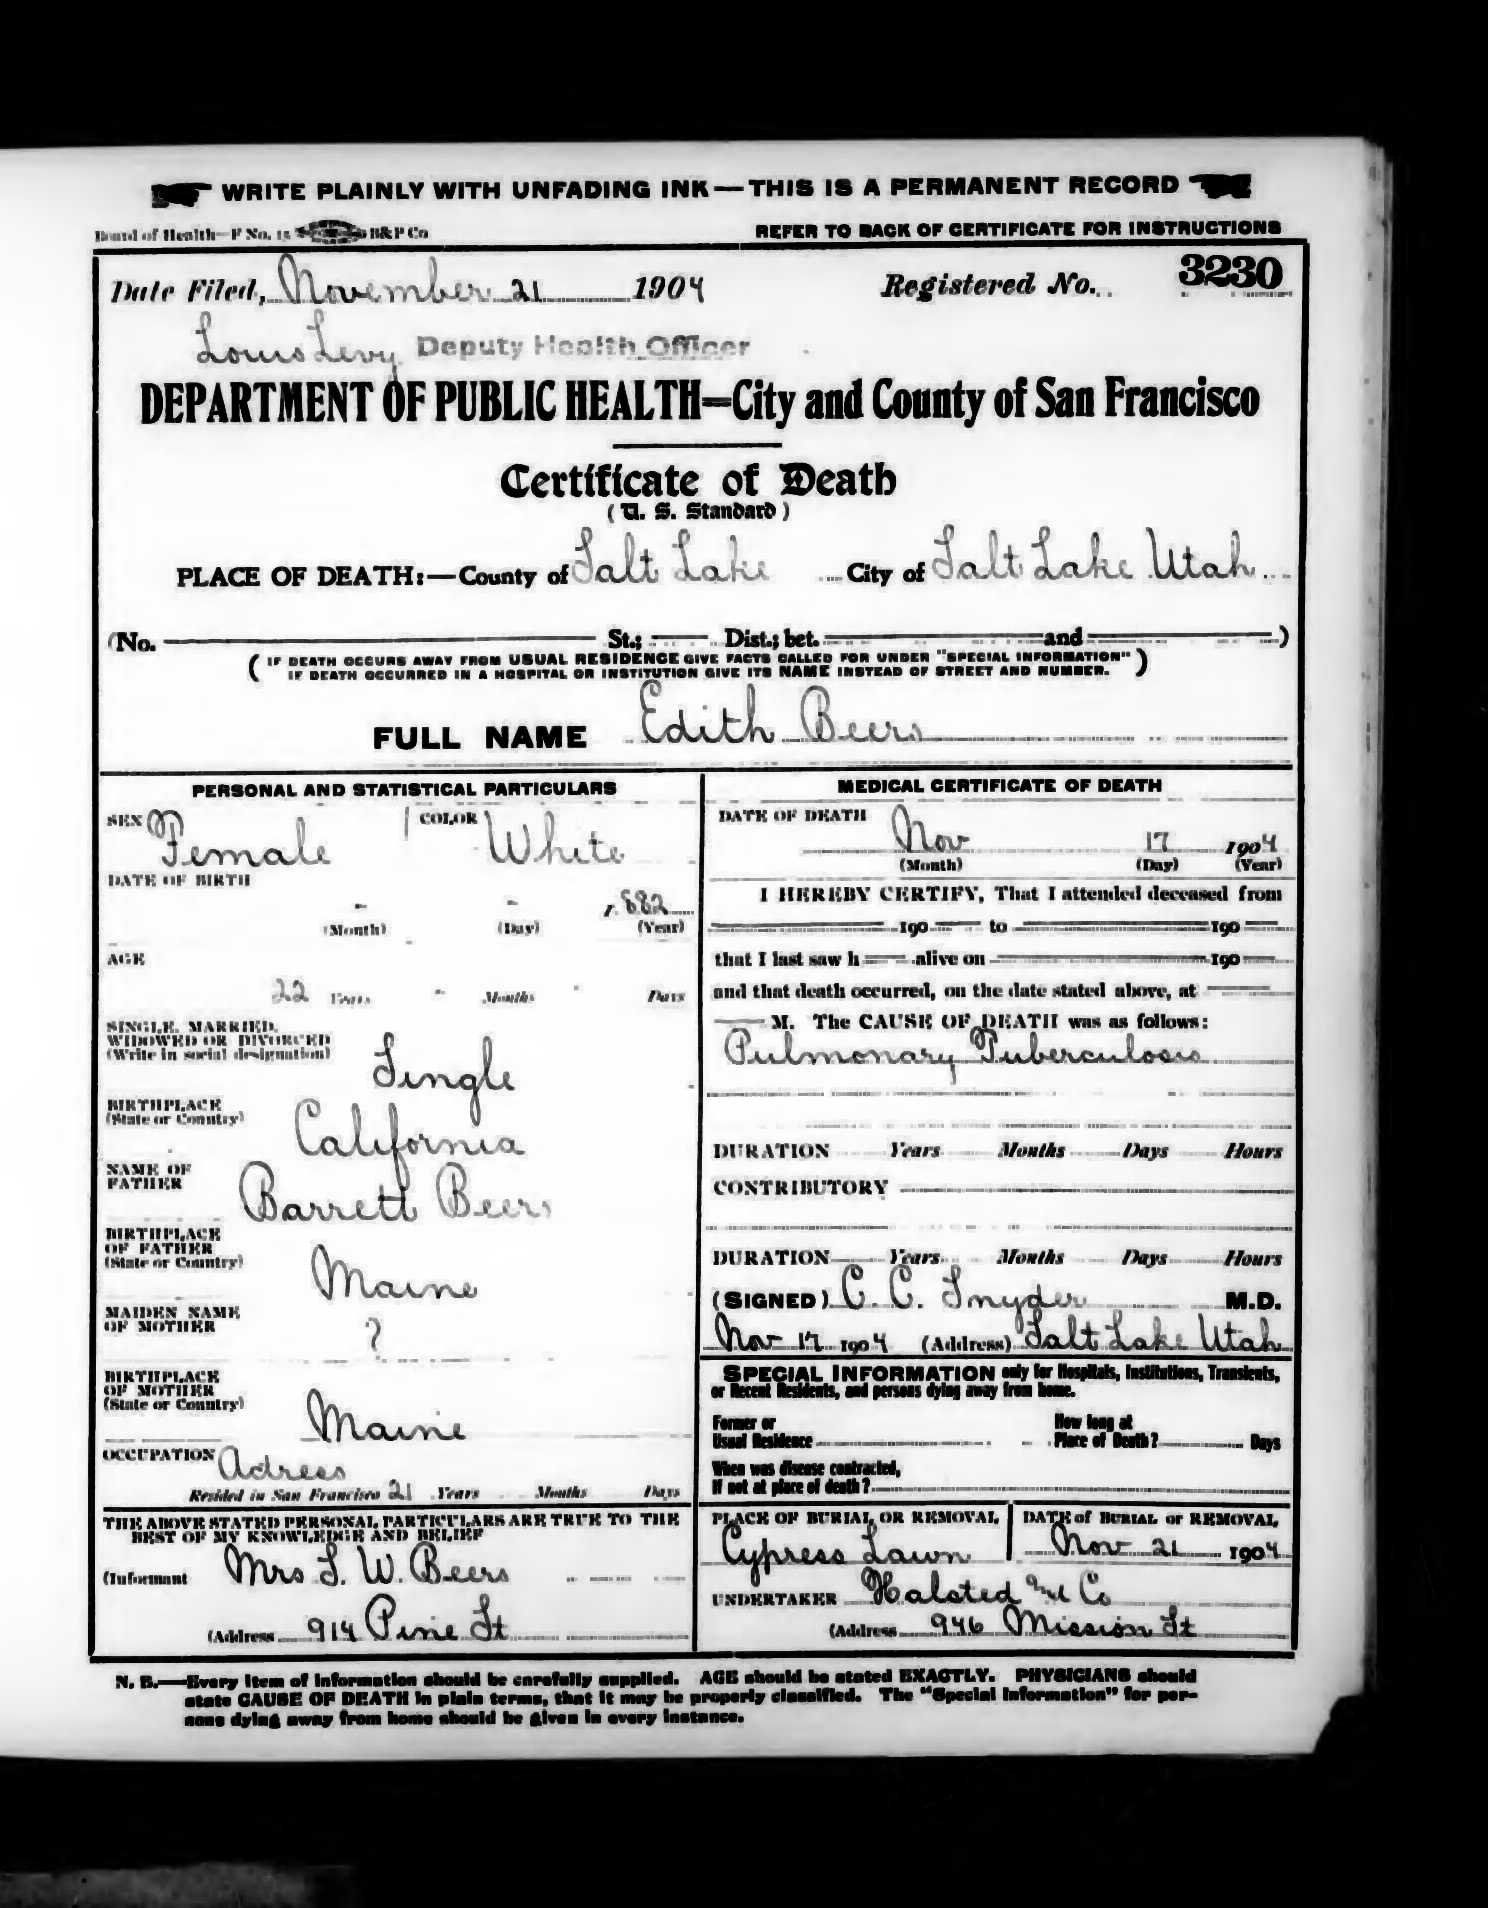 WRITE PLAINLY WITH UNFADING INK—THIS IS A PERMANENT RECORD
Board of Health—F No. 15 B&P Co REFER TO BACK OF CERTIFICATE FOR INSTRUCTIONS
Date Filed, November 21 1904 Registered No. 3230
Louis Levy Deputy Health Officer
DEPARTMENT OF PUBLIC HEALTH=City and County of San Francisco
Certificate of Death
(U. S. Standard)
PLACE OF DEATH:—County of Salt Lake City of Salt Lake Utah
(No. St.; Dist.; bet. and )
(IF DEATH OCCURS AWAY FROM USUAL RESIDENCE GIVE FACTS CALLED FOR UNDER "SPECIAL INFORMATION"
IF DEATH OCCURRED IN A HOSPITAL OR INSTITUTION GIVE ITS NAME INSTEAD OF STREET AND NUMBER.)
FULL NAME Edith Beers
PERSONAL AND STATISTICAL PARTICULARS
SEX Female COLOR White
DATE OF BIRTH
- - 1882
(Month) (Day) (Year)
AGE
22 Years - Months - Days
SINGLE, MARRIED,
WIDOWED OR DIVORCED
(Write in social designation) Single
BIRTHPLACE
(State or Country) California
NAME OF
FATHER Barrett Beers
BIRTHPLACE
OF FATHER
(State or Country) Maine
MAIDEN NAME
OF MOTHER ?
BIRTHPLACE
OF MOTHER
(State or Country) Maine
OCCUPATION Adress
Resided in San Francisco 21 Years Months Days
THE ABOVE STATED PERSONAL PARTICULARS ARE TRUE TO THE
BEST OF MY KNOWLEDGE AND BELIEF
(Informant Mrs S. W. Beers
(Address 914 Pine St
MEDICAL CERTIFICATE OF DEATH
DATE OF DEATH Nov 17 1904
(Month) (Day) (Year)
I HEREBY CERTIFY, That I attended deceased from
190 to 190
that I last saw h alive on 190
and that death occurred, on the date stated above, at
M. The CAUSE OF DEATH was as follows:
Pulmonary Tuberculosis
DURATION Years Months Days Hours
CONTRIBUTORY
DURATION Years Months Days Hours
(SIGNED) C. C. Snyder M.D.
Nov 17 1904 (Address) Salt Lake Utah
SPECIAL INFORMATION only for Hospitals, Institutions, Transients,
or Recent Residents, and persons dying away from home.
Former or How long at
Usual Residence Place of Death? Days
When was disease contracted,
If not at place of death?
PLACE OF BURIAL OR REMOVAL DATE of BURIAL or REMOVAL
Cypress Lawn Nov 21 1904
UNDERTAKER Halsted and Co
(Address 946 Mission St
N. B.—Every item of information should be carefully supplied. AGE should be stated EXACTLY. PHYSICIANS should
state CAUSE OF DEATH in plain terms, that it may be properly classified. The "Special Information" for per-
sons dying away from home should be given in every instance.